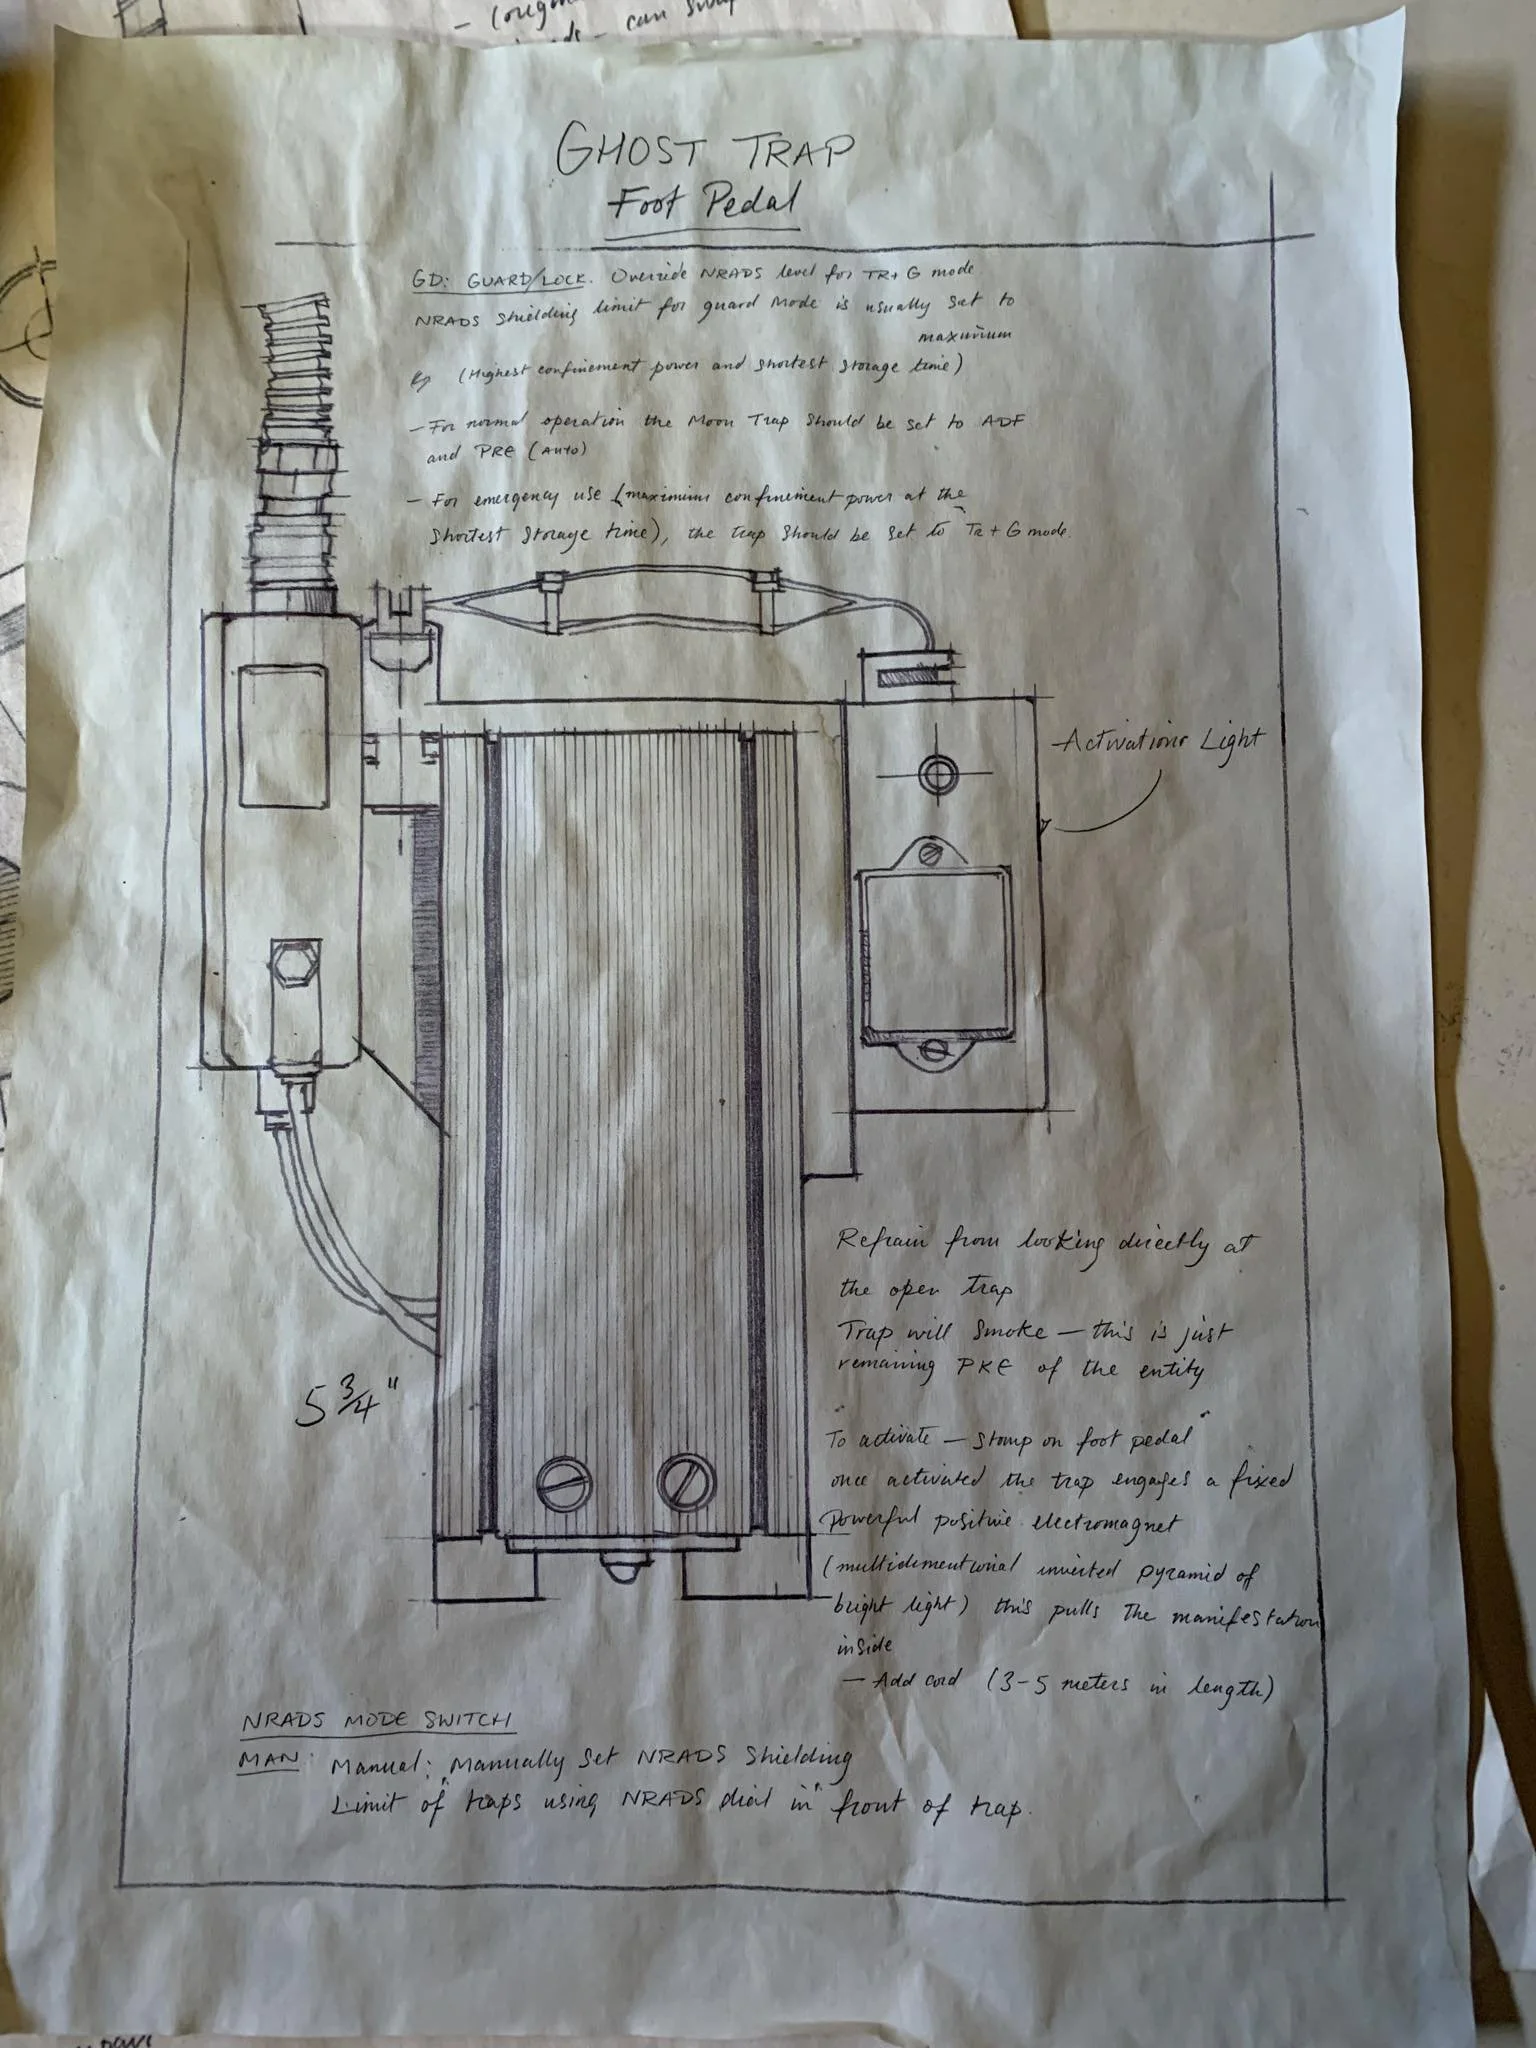 can swap
GHOST TRAP
Foot Pedal
GD: GUARD/LOCK. Override NRADS level for TR+G mode.
NRADS Shielding limit for guard Mode is usually set to
maximum
(Highest confinement power and shortest storage time)
- For normal operation the Moon Trap Should be set to ADF
and PRE (AUTO)
- For emergency use (maximum confinement power at the
Shortest Storage time), the trap should be set to Tr+G mode.
Activation Light
Refrain from looking directly at
the open trap
Trap will smoke — this is just
remaining PKE of the entity
5 3/4"
To activate — Stomp on foot pedal"
once activated the trap engages a fixed
powerful positive electromagnet
(multidimentional inverted pyramid of
bright light) this pulls the manifestation
inside
— Add cord (3-5 meters in length)
NRADS MODE SWITCH
MAN: Manual: Manually Set NRADS Shielding
Limit of "traps using NRADS dial in" front of trap.